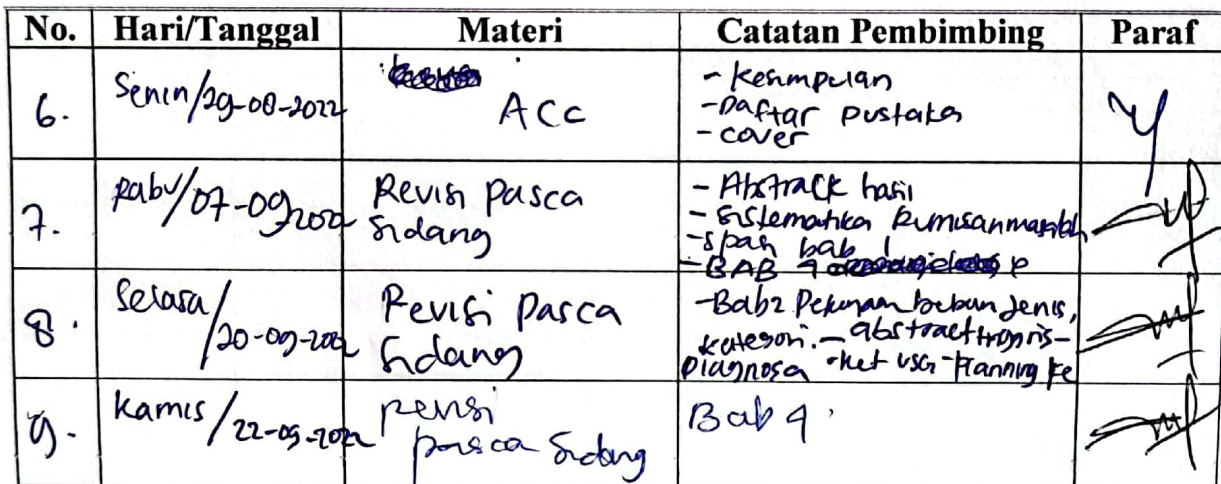 No. Hari/Tanggal Materi Catatan Pembimbing Paraf
6. Senin/29-08-2022 ACC - Kesimpulan
- Daftar pustaka
- cover
7. Rabu/07-09-2022 Revisi Pasca - Abstrack hasil
Sidang - Sistematika Rumusan masalah
- Spasi bab 1
- BAB 4
8. Selasa/20-09-2022 Revisi Pasca - Bab2 beban Jenis,
Sidang kategori. -
Diagnosa - ket - Planning ke
9. Kamis/22-09-2022 revisi Bab 4
pasca Sidang